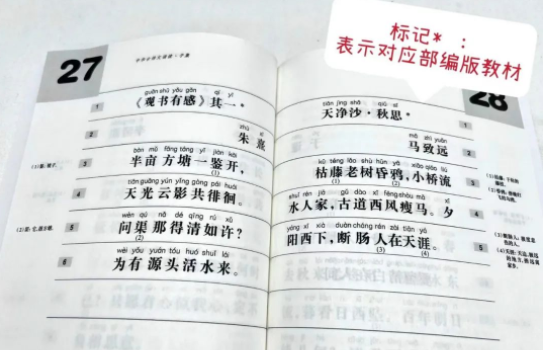 标记* ：
表示对应部编版教材
27
guān shū yǒu gǎn qí yī
1 《观书有感》其一*
zhū xī
2 朱 熹
bàn mǔ fāng táng yí jiàn kāi
3 半亩方塘一鉴开，
tiān guāng yún yǐng gòng pái huái
4 天光云影共徘徊。
wèn qú nà dé qīng rú xǔ
5 问渠那得清如许？
wèi yǒu yuán tóu huó shuǐ lái
6 为有源头活水来。
28
tiān jìng shā qiū sī
1 天净沙·秋思*
mǎ zhì yuǎn
2 马致远
kū téng lǎo shù hūn yā xiǎo qiáo liú
3 枯藤老树昏鸦，小桥流
shuǐ rén jiā gǔ dào xī fēng shòu mǎ xī
4 水人家，古道西风瘦马。夕
yáng xī xià duàn cháng rén zài tiān yá
5 阳西下，断肠人在天涯。